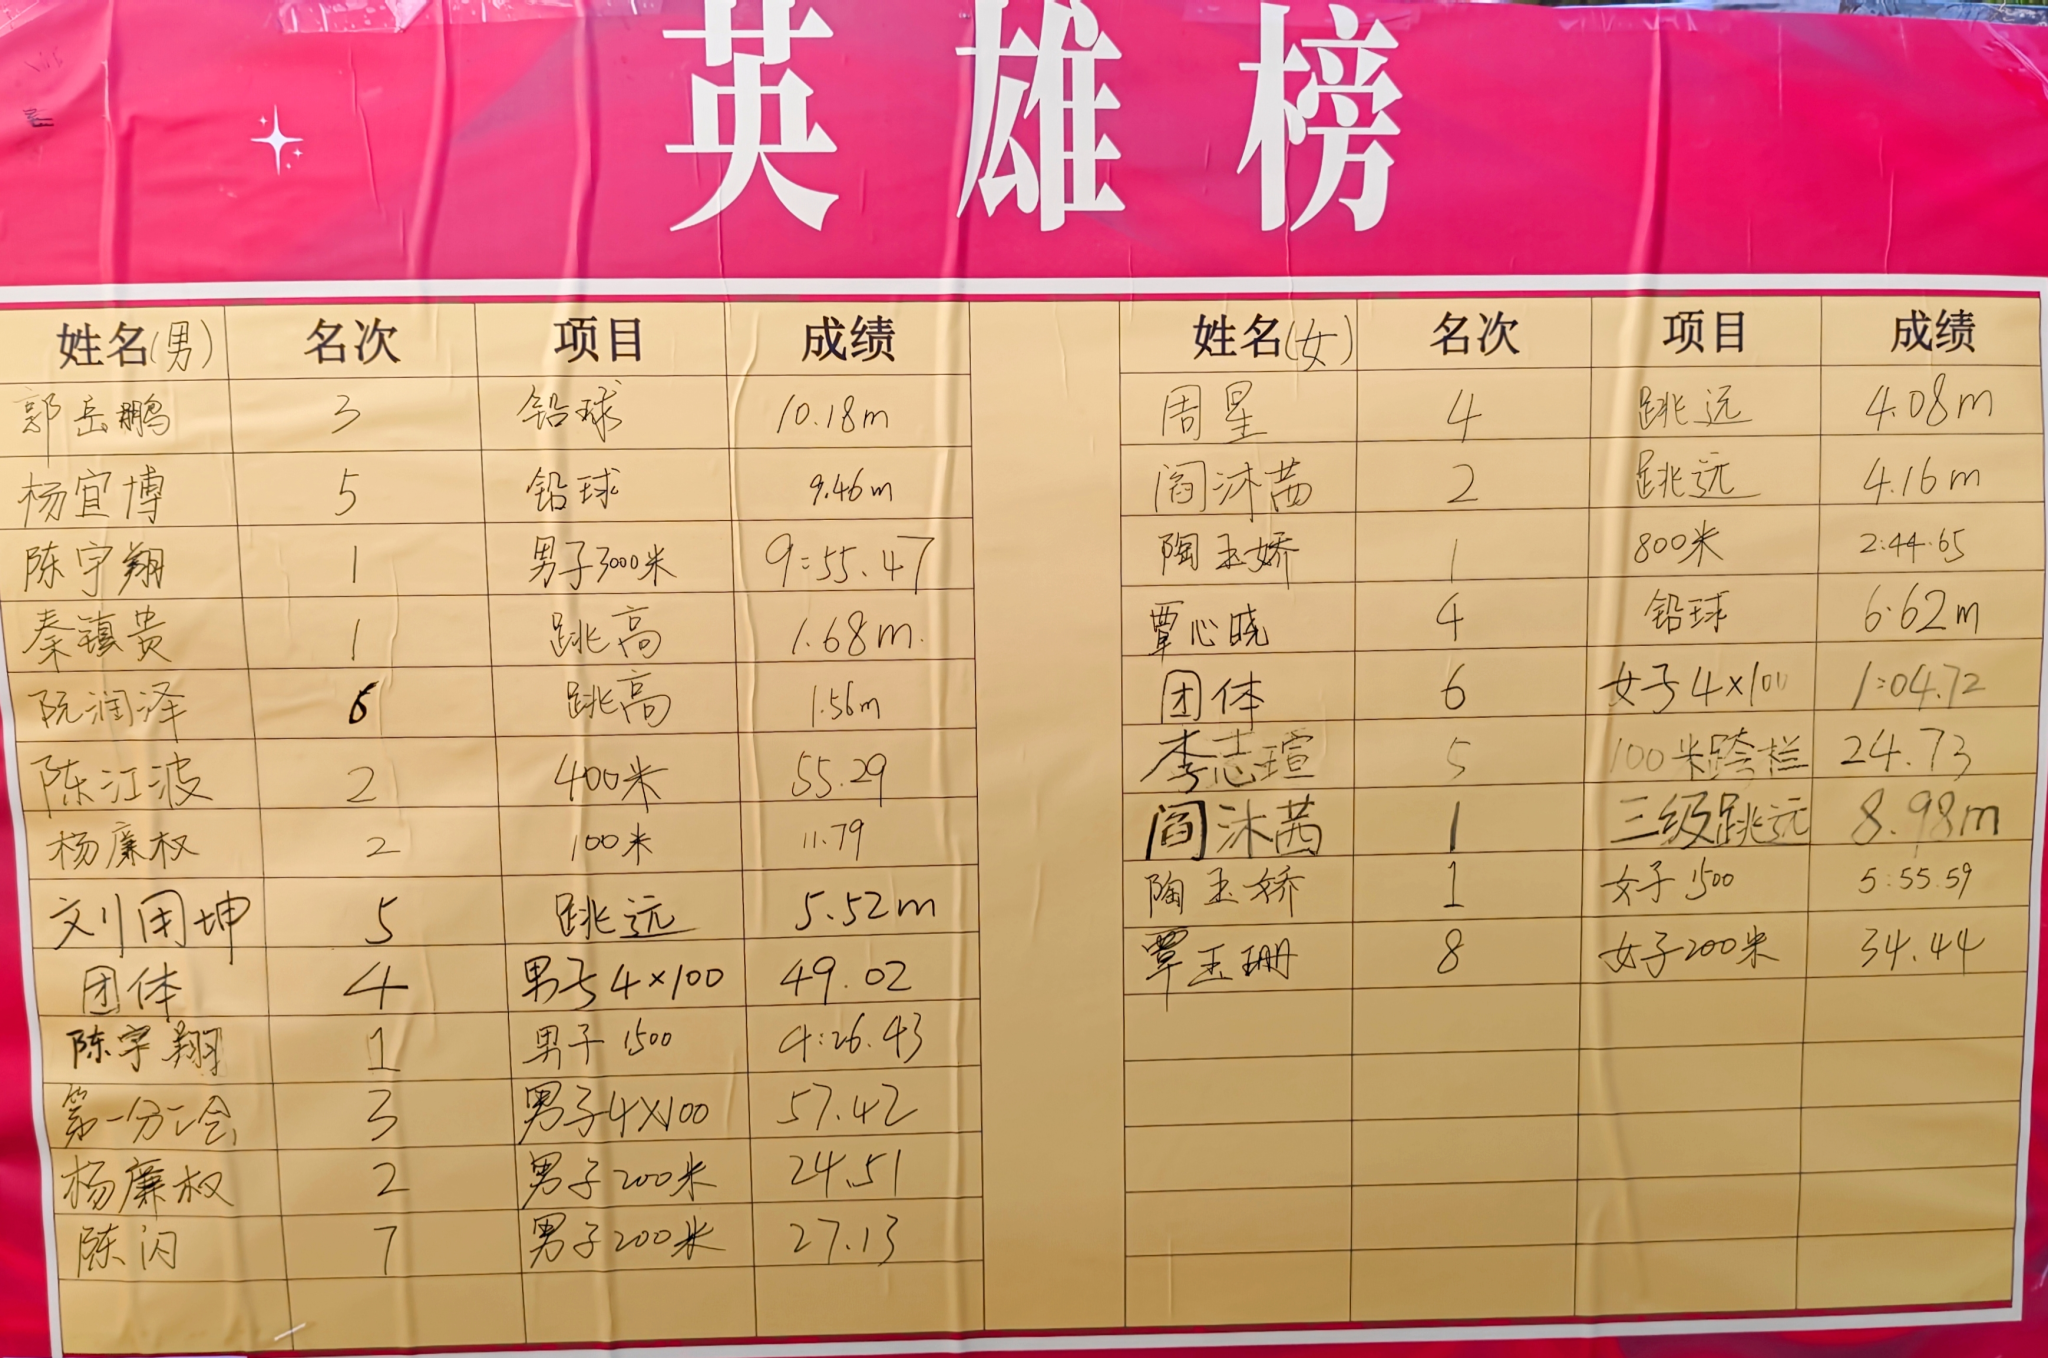 英雄榜
姓名(男) 名次 项目 成绩
郭岳鹏 3 铅球 10.18m
杨宜博 5 铅球 9.46m
陈宇翔 1 男子3000米 9:55.47
秦镇贵 1 跳高 1.68m.
阮润泽 6 跳高 1.56m
陈江波 2 400米 55.29
杨廉权 2 100米 11.79
刘用坤 5 跳远 5.52m
团体 4 男子4×100 49.02
陈宇翔 1 男子1500 4:26.43
第一分工会 3 男子4×100 57.42
杨廉权 2 男子200米 24.51
陈闪 7 男子200米 27.13
姓名(女) 名次 项目 成绩
周星 4 跳远 4.08m
阎沐茜 2 跳远 4.16m
陶玉娇 1 800米 2:44.65
覃心晓 4 铅球 6.62m
团体 6 女子4×100 1:04.72
李志瑄 5 100米跨栏 24.73
阎沐茜 1 三级跳远 8.98m
陶玉娇 1 女子1500 5:55.59
覃玉珊 8 女子200米 34.44